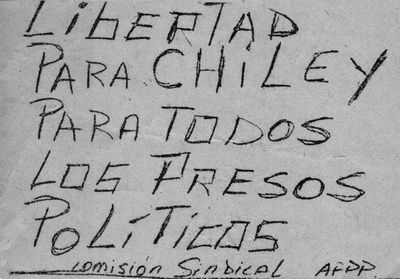 LIBERTAD
PARA CHILE Y
PARA TODOS
LOS PRESOS
POLÍTICOS
comisión Sindical AFDD